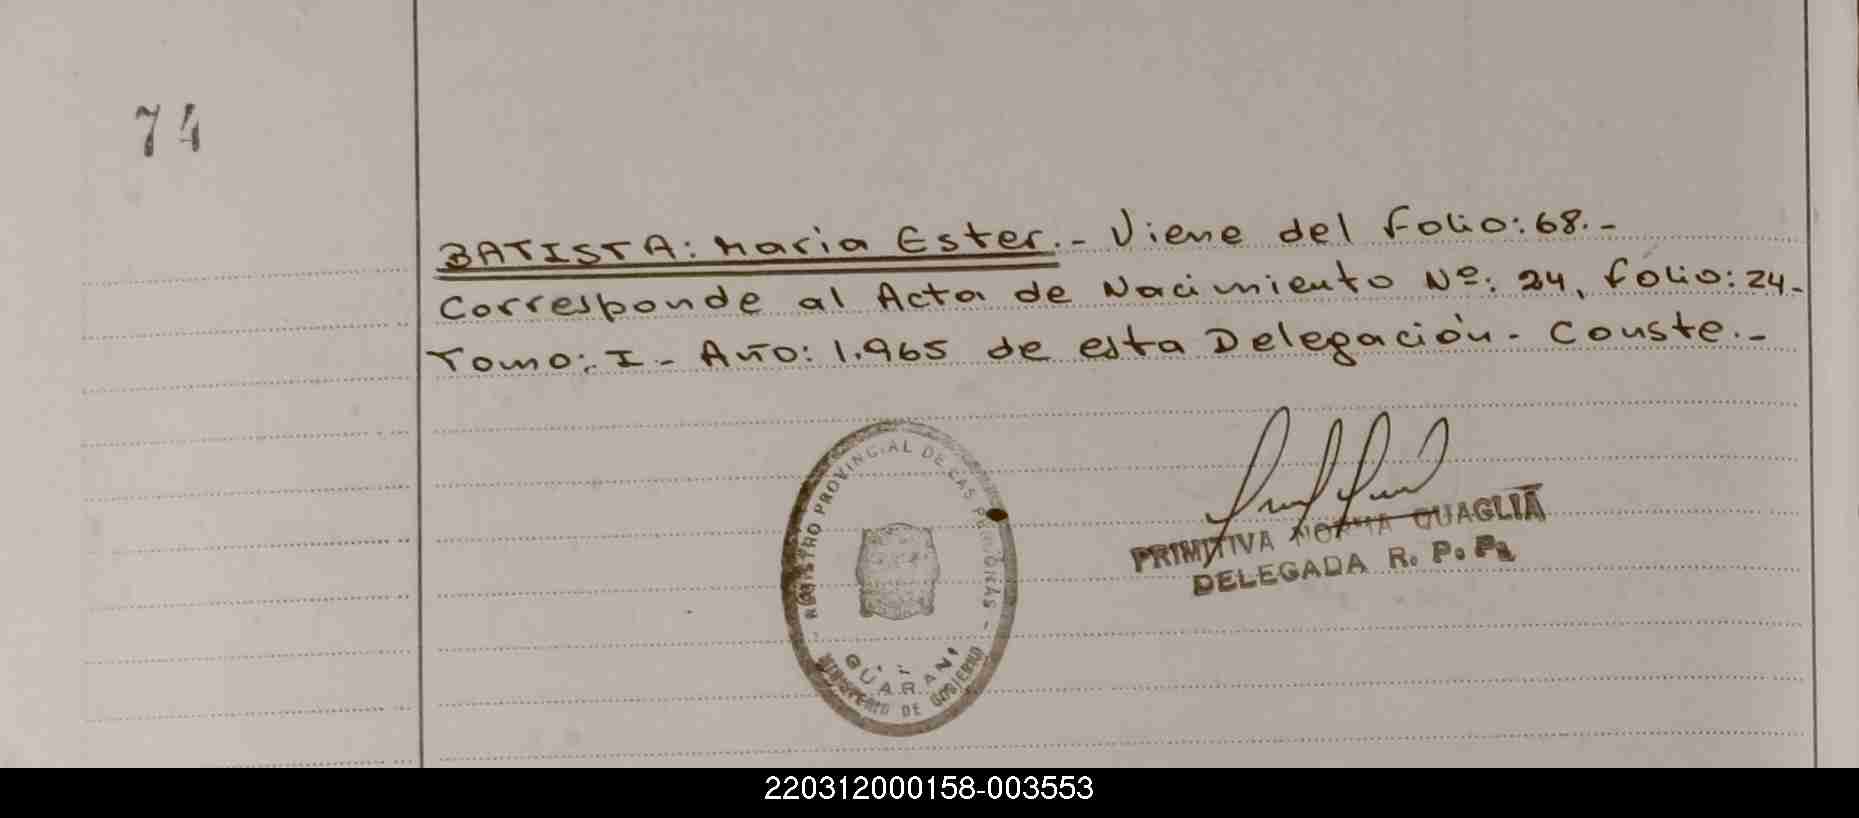 74
BATISTA: Maria Ester.- Viene del folio: 68.-
Corresponde al Acta de Nacimiento Nº: 24, folio: 24-
Tomo: I.- Año: 1.965 de esta Delegación.- Conste.-
REGISTRO PROVINCIAL DE LAS PERSONAS -
GUARANI
MINISTERIO DE GOBIERNO
PRIMITIVA NORMA QUAGLIA
DELEGADA R. P. Ps
220312000158-003553